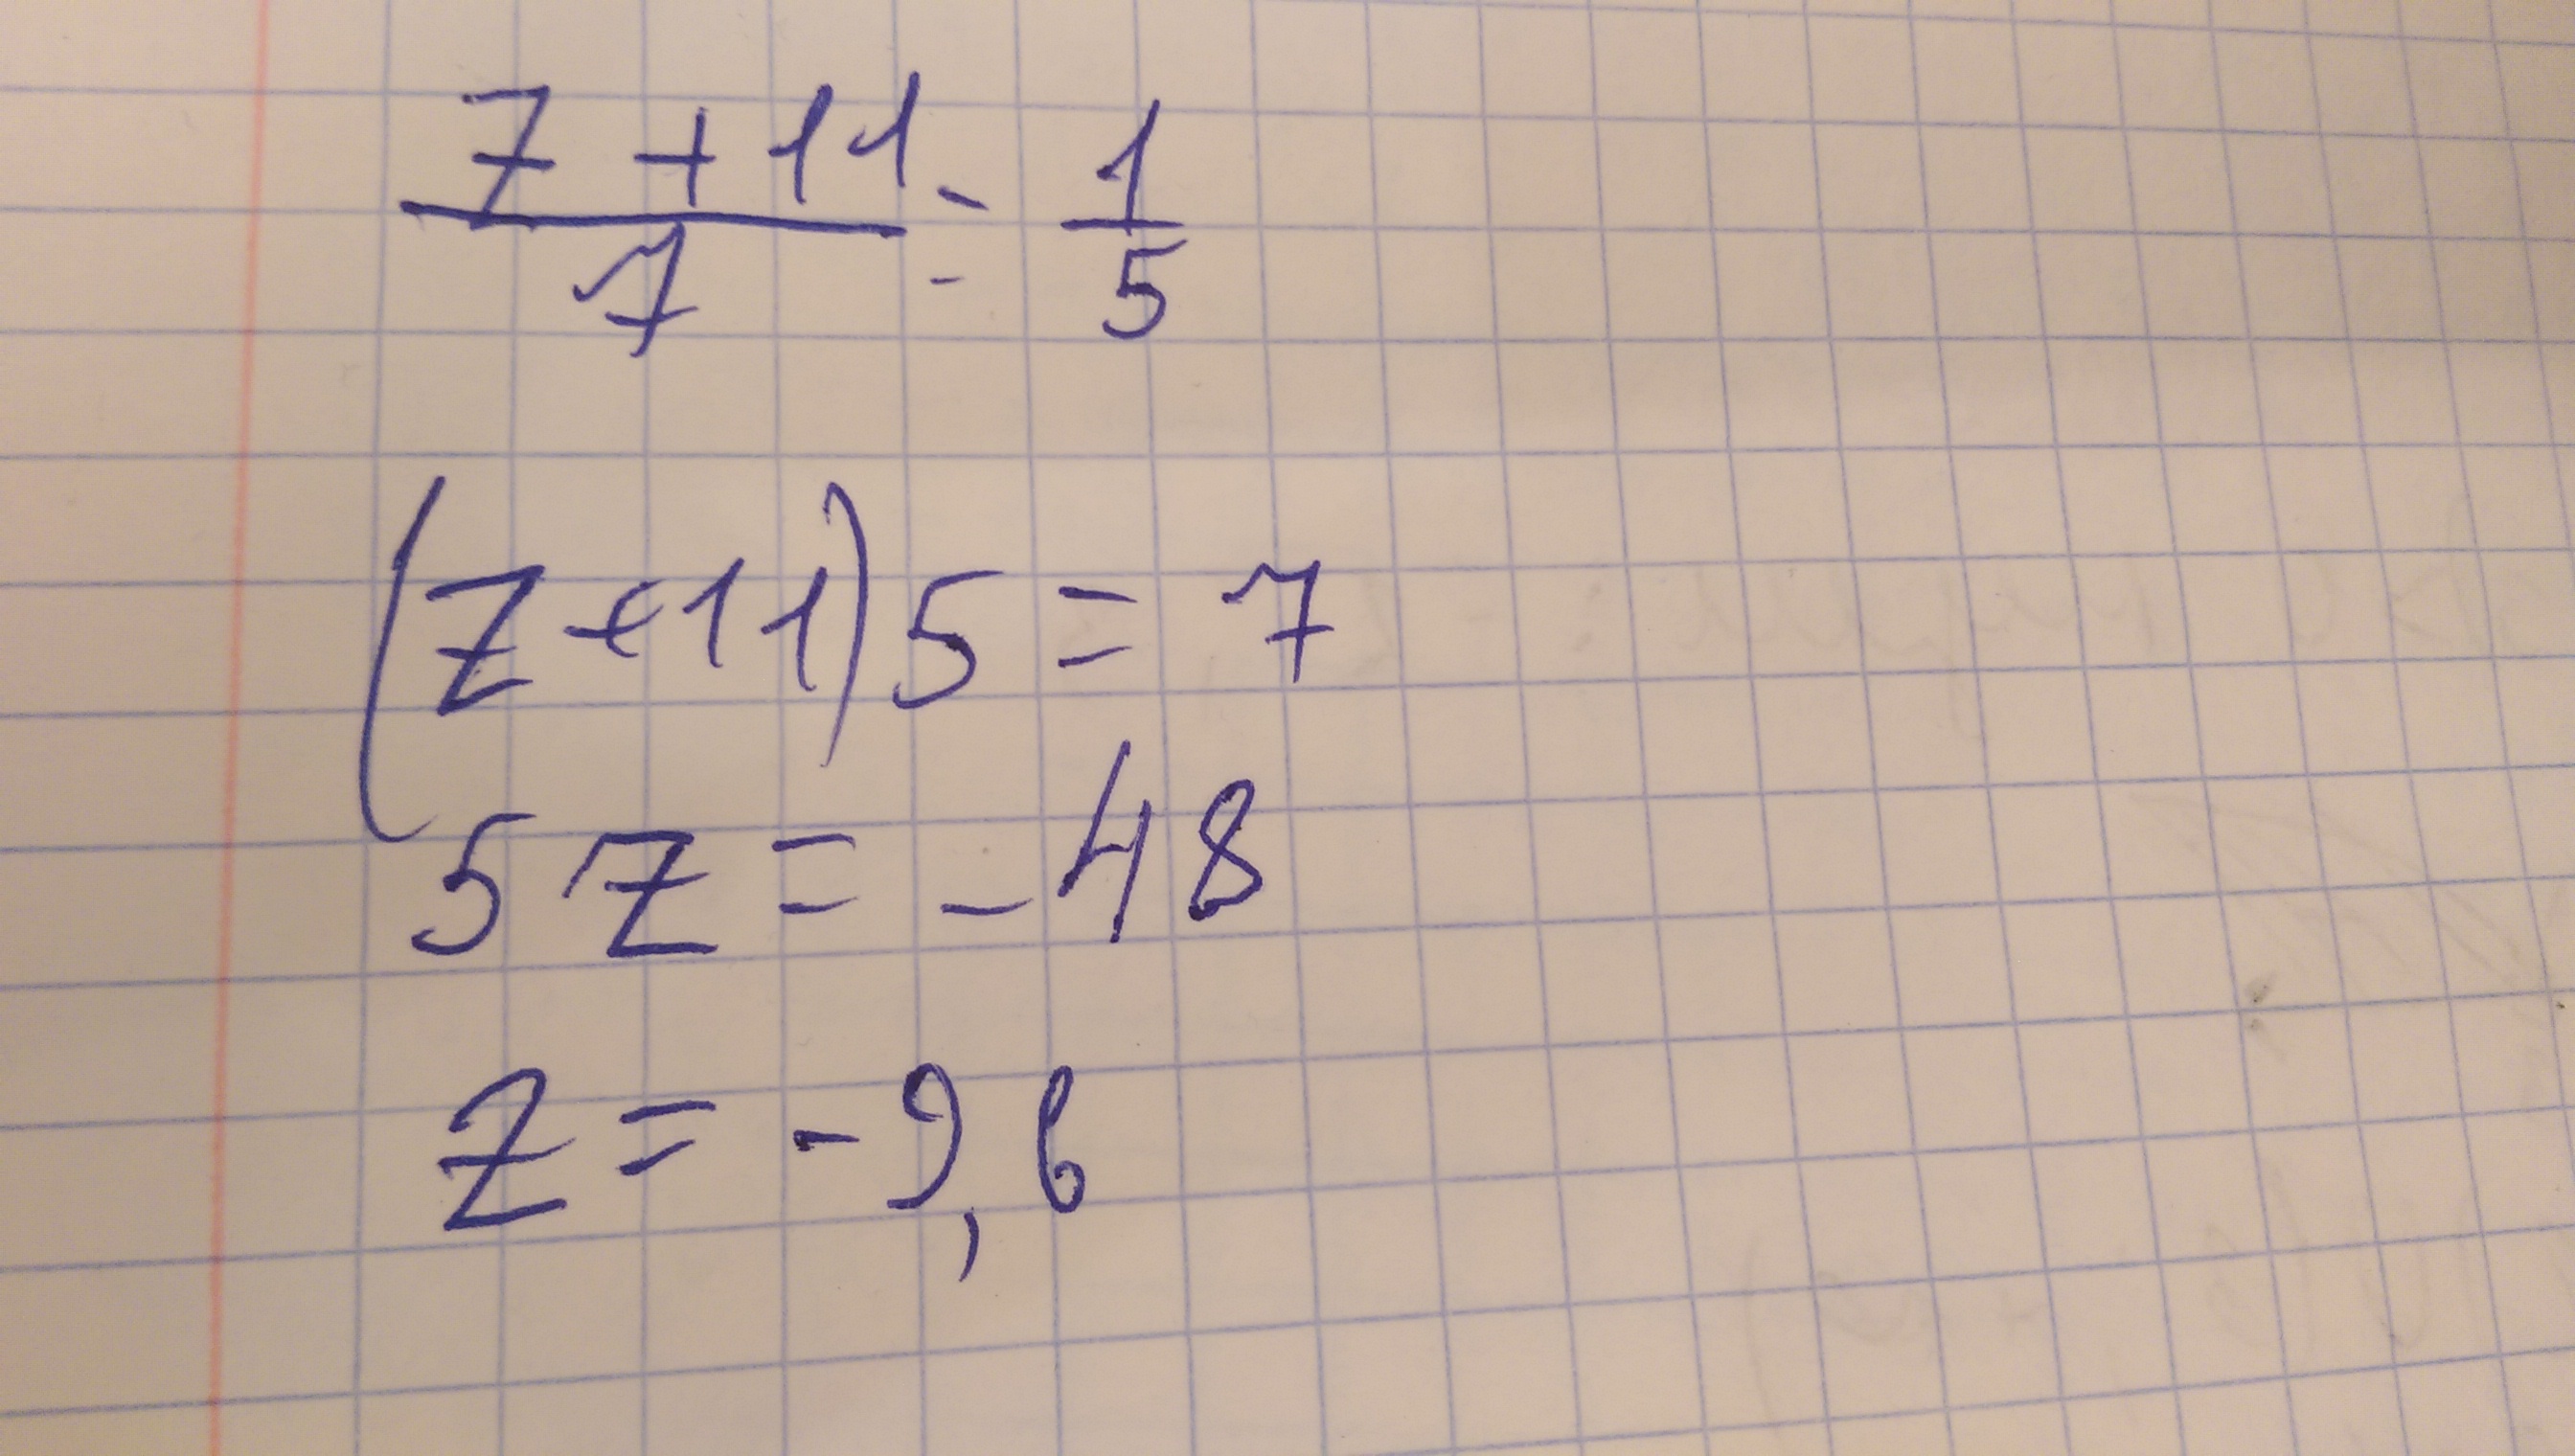 z + 11 / 7 = 1 / 5
(z + 11) 5 = 7
5 z = - 48
z = - 9,6